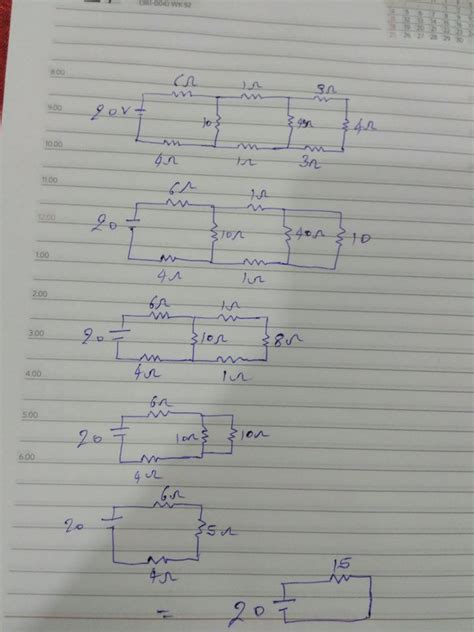 (381-004) WK 52
8.00
6Ω 1Ω 3Ω
9.00
20V 10 4Ω
10.00
4Ω 1Ω 3Ω
11.00
6Ω 1Ω
12.00
20 10Ω 40Ω 10
1.00
4Ω 1Ω
2.00
6Ω 1Ω
3.00
20 10Ω 8Ω
4.00
4Ω 1Ω
5.00
6Ω
20 10Ω 10Ω
6.00
4Ω
6Ω
20 5Ω
4Ω
15
= 20